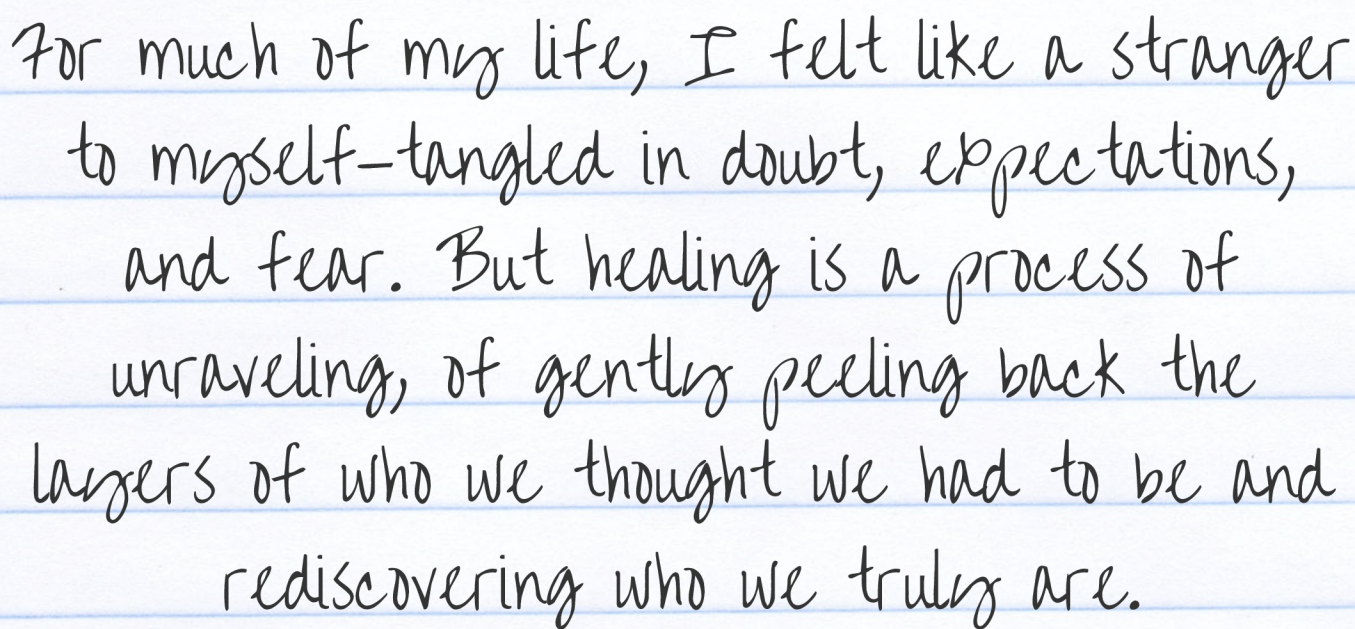 For much of my life, I felt like a stranger
to myself–tangled in doubt, expectations,
and fear. But healing is a process of
unraveling, of gently peeling back the
layers of who we thought we had to be and
rediscovering who we truly are.